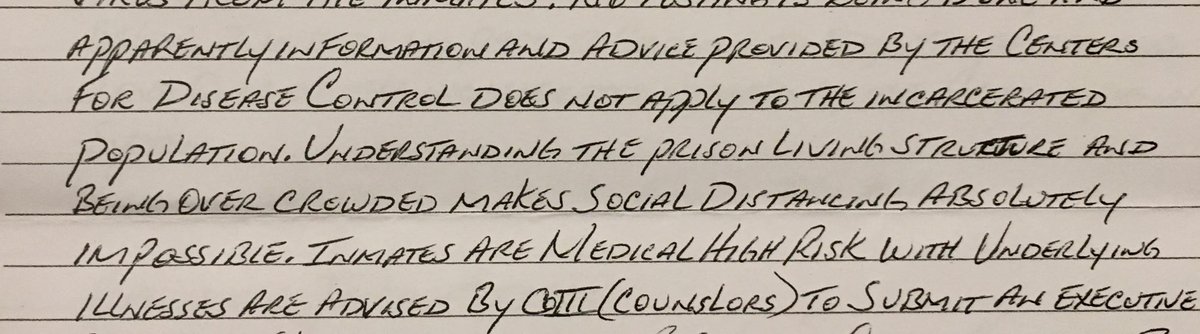 VIRUS FROM THE INMATES. NO TESTING IS BEING DONE AND
APPARENTLY INFORMATION AND ADVICE PROVIDED BY THE CENTERS
FOR DISEASE CONTROL DOES NOT APPLY TO THE INCARCERATED
POPULATION. UNDERSTANDING THE PRISON LIVING STRUCTURE AND
BEING OVER CROWDED MAKES SOCIAL DISTANCING ABSOLUTELY
IMPOSSIBLE. INMATES ARE MEDICAL HIGH RISK WITH UNDERLYING
ILLNESSES ARE ADVISED BY (COUNSLORS) TO SUBMIT AN EXECUTIVE